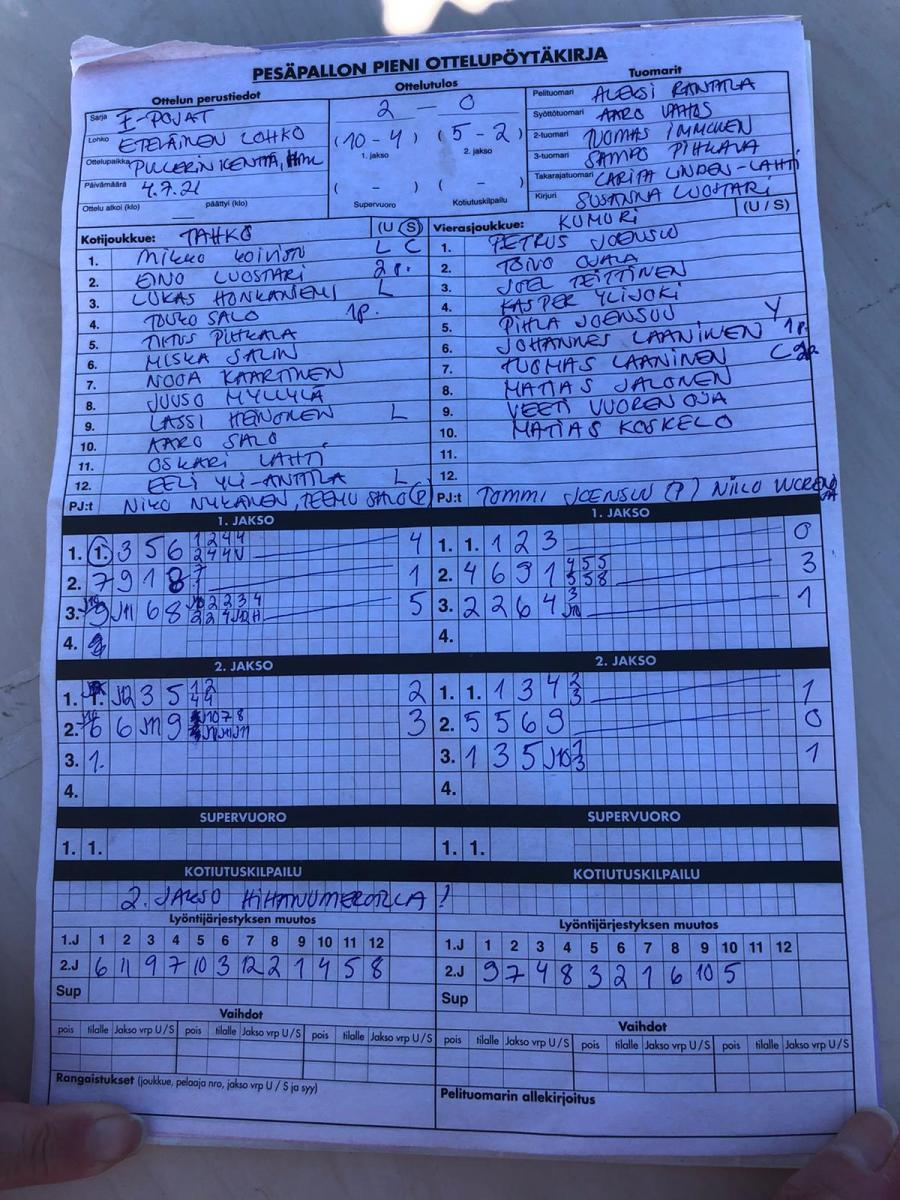 PESÄPALLON PIENI OTTELUPÖYTÄKIRJA
Ottelun perustiedot
Sarja E-POJAT
Lohko ETELÄINEN LOHKO
Ottelupaikka PULLERIN KENTTÄ, HML
Päivämäärä 4.7.21
Ottelu alkoi (klo) päättyi (klo)
Ottelutulos
2 - 0
(10 - 4) (5 - 2)
1. jakso 2. jakso
( - ) ( - )
Supervuoro Kotiutuskilpailu
Tuomarit
Pelituomari ALEKSI RANTALA
Syöttötuomari AARO
2-tuomari TUOMAS IMMONEN
3-tuomari SAMPO PIHKALA
Takarajatuomari CARITA LINDEN-LAHTI
Kirjuri SUSANNA LUOSTARI
Kotijoukkue: TAHKO (U S)
1. MIKKO KOIVISTO L C
2. EINO LUOSTARI 2p.
3. LUKAS HONKANIEMI L
4. TOUKO SALO 1p.
5. TIITUS PIHKALA
6. MISKA SALIN
7. NOOA KAARTINEN
8. JUUSO MYLLYLÄ
9. LASSI HEINONEN L
10. AARO SALO
11. OSKARI LAHTI
12. EELI YLI-ANTTILA L
PJ:t NIKO NYKÄNEN, TEEMU SALO (P)
Vierasjoukkue: KUMURI (U / S)
1. PETRUS JOENSUU
2. TOIVO OJALA
3. JOEL TEITTINEN
4. KASPER YLIJOKI
5. PIHLA JOENSUU Y
6. JOHANNES LAANINEN 1p.
7. TUOMAS LAANINEN C
8. MATIAS JALONEN
9. VEETI VUORENOJA
10. MATIAS KOSKELO
11.
12.
PJ:t TOMMI JOENSUU (P) NIKO VUORENOJA
1. JAKSO
1. 1. 3 5 6 4
2. 7 9 1 8 1
3. 9 J11 6 8 5
4.
1. JAKSO
1. 1. 1 2 3 0
2. 4 6 9 1 4 5 5 5 5 8 3
3. 2 2 6 4 1
4.
2. JAKSO
1. 1. J12 3 5 1 2 4 4 2
2. 6 6 J11 9 3
3. 1.
4.
2. JAKSO
1. 1. 1 3 4 2 3 1
2. 5 5 6 9 0
3. 1 3 5 J10 1
4.
SUPERVUORO
1. 1.
SUPERVUORO
1. 1.
KOTIUTUSKILPAILU
KOTIUTUSKILPAILU
2. JAKSO HIHANUMEROILLA!
Lyöntijärjestyksen muutos
1.J 1 2 3 4 5 6 7 8 9 10 11 12
2.J 6 11 9 7 10 3 12 2 1 4 5 8
Sup
Lyöntijärjestyksen muutos
1.J 1 2 3 4 5 6 7 8 9 10 11 12
2.J 9 7 4 8 3 2 1 6 10 5
Sup
Vaihdot
pois tilalle Jakso vrp U / S pois tilalle Jakso vrp U / S pois tilalle Jakso vrp U / S
Vaihdot
pois tilalle Jakso vrp U / S pois tilalle Jakso vrp U / S pois tilalle Jakso vrp U / S
Rangaistukset (joukkue, pelaaja nro, jakso vrp U / S ja syy)
Pelituomarin allekirjoitus